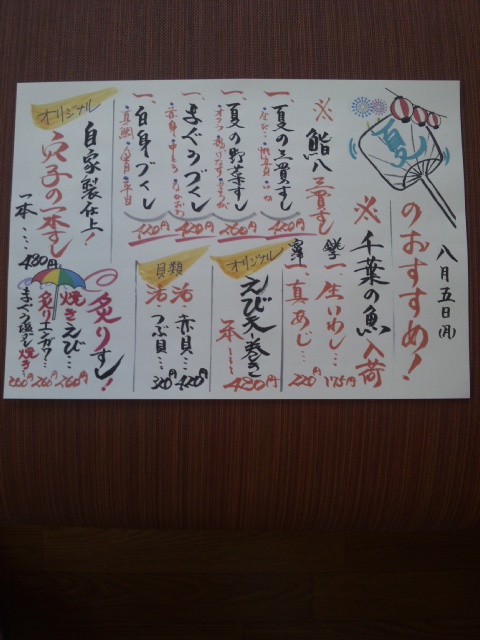 夏
八月五日(月)
のおすすめ!
※千葉の魚入荷
銚子
一、生いわし…175円
一、真あじ…220円
※鮨八三貫すし
一、夏の三貫すし
420円
一、夏の野菜すし
260円
一、まぐろづくし
420円
一、白身づくし
420円
オリジナル
えび天巻き
一本…420円
貝類
活、赤貝…420円
活、つぶ貝…320円
オリジナル
自家製仕上!
穴子の一本すし
一本…480円
炙りすし!
焼きえび…260円
炙りエンガワ…260円